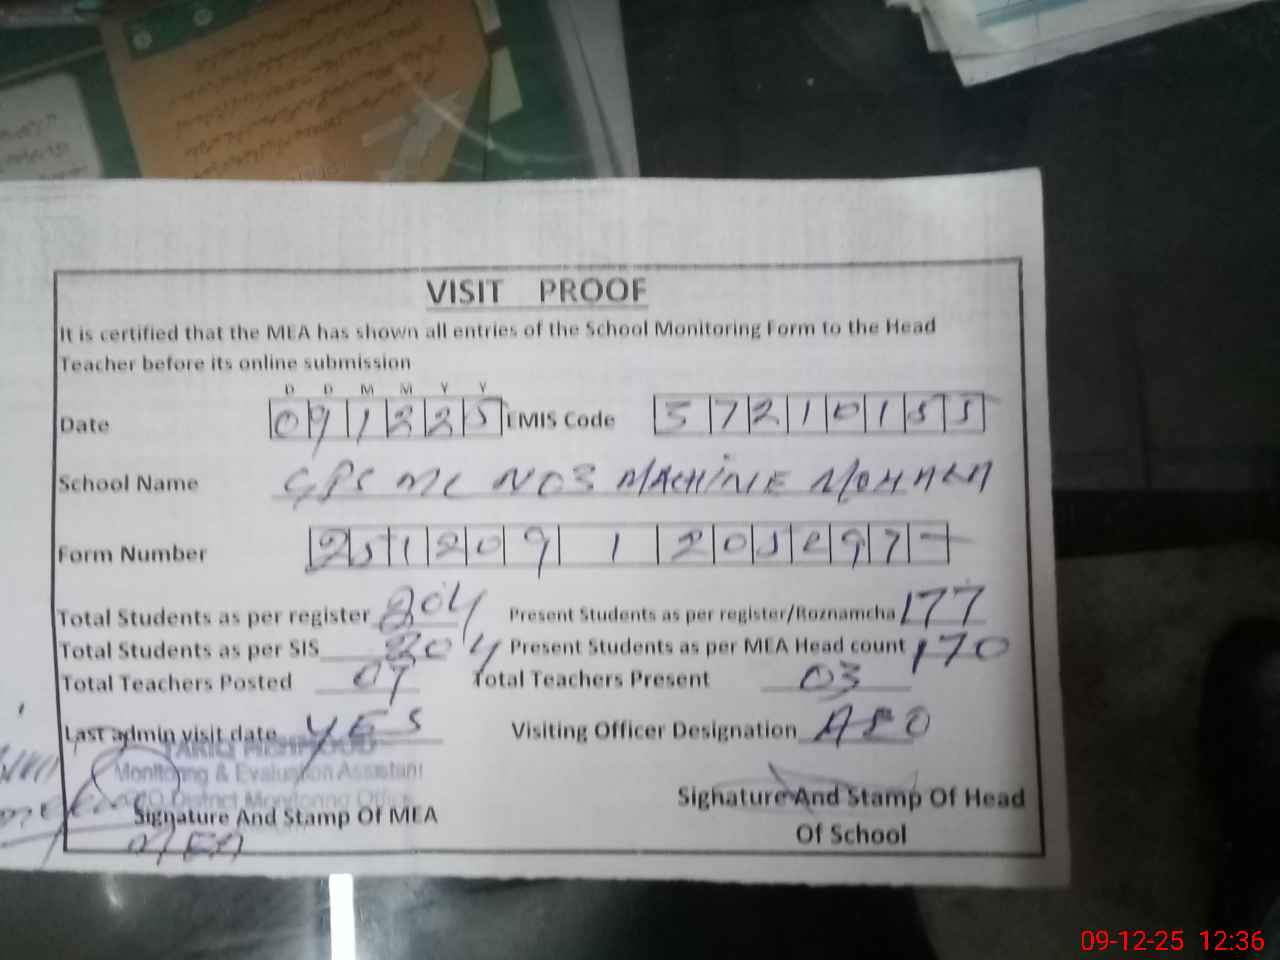 VISIT PROOF
It is certified that the MEA has shown all entries of the School Monitoring Form to the Head
Teacher before its online submission
D D M M Y Y
Date 091225 EMIS Code 37210155
School Name GPS MC NO3 MACHINE MOHALA
Form Number 251209 1 205297-
Total Students as per register 204 Present Students as per register/Roznamcha 177
Total Students as per SIS 204 Present Students as per MEA Head count 170
Total Teachers Posted 07 Total Teachers Present 03
Last admin visit date YES Visiting Officer Designation AEO
TARIQ MEHMOOD
Monitoring & Evaluation Assistant
District Monitoring Office
Signature And Stamp Of MEA
MEA
Signature And Stamp Of Head
Of School
09-12-25 12:36